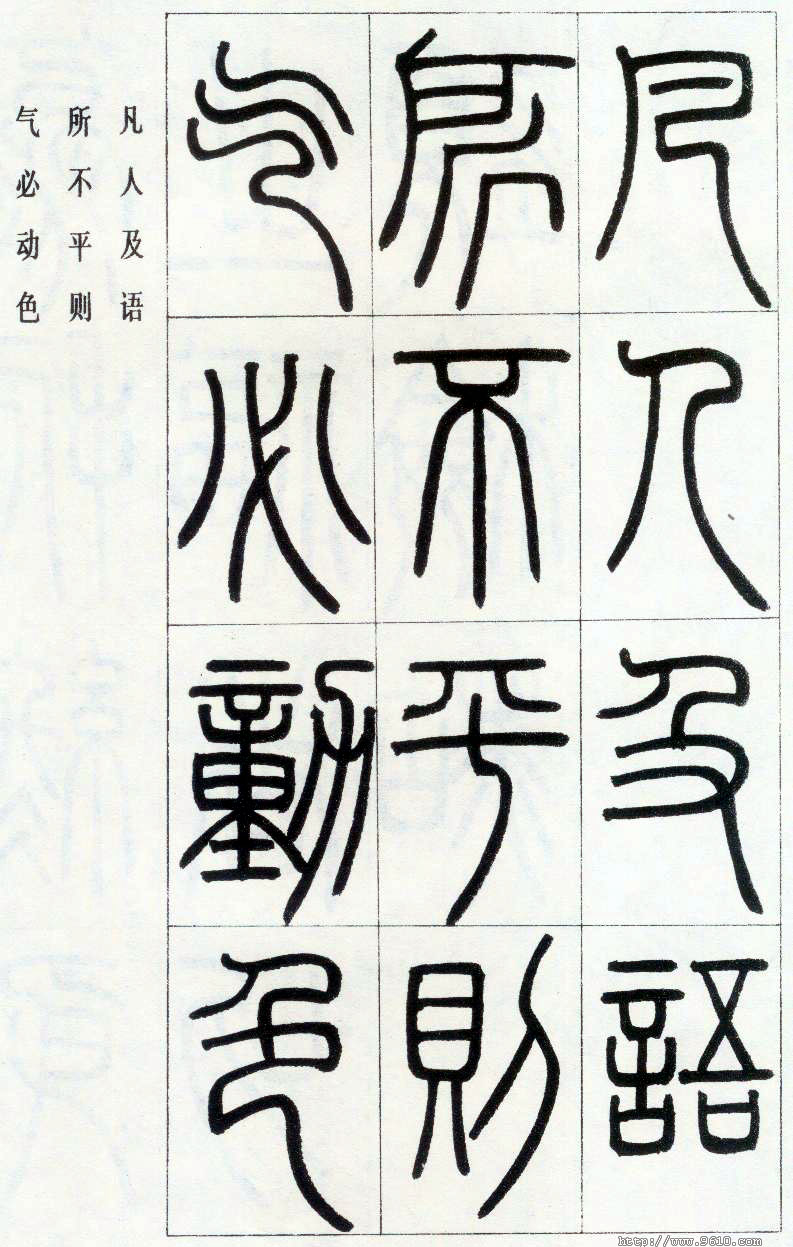 凡人及語
所不平則
气必動色
凡人及语
所不平则
气必动色
http://www.9610.com